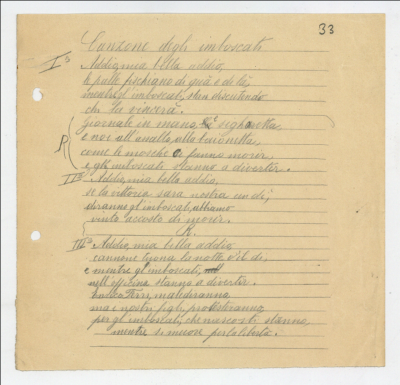 33
Canzone degli imboscati
I°
Addio, mia bella addio,
le palle fischiano di quà e di là,
mentre l'imboscat, stan discutendo
chi la vincerà.
R
giornale in mano e sigharetta,
e noi all'assalto, alla baionetta,
come le mosche ci fanno morir,
e gli imboscati stanno a divertir.
II°
Addio, mia bella addio,
se la vittoria sarà nostra un dì,
diranno gl'imboscat, abbiamo
vinto accosto di morir.
R.
III°
Addio, mia bella addio
cannone tuona la notte e il dì,
e mentre gl'imboscati,
nell'officine stanno a divertir.
malediranno
ma e nostri figli, protesteranno,
per gl'imboscati, che nascosti stanno,
mentre si muore per la libertà.